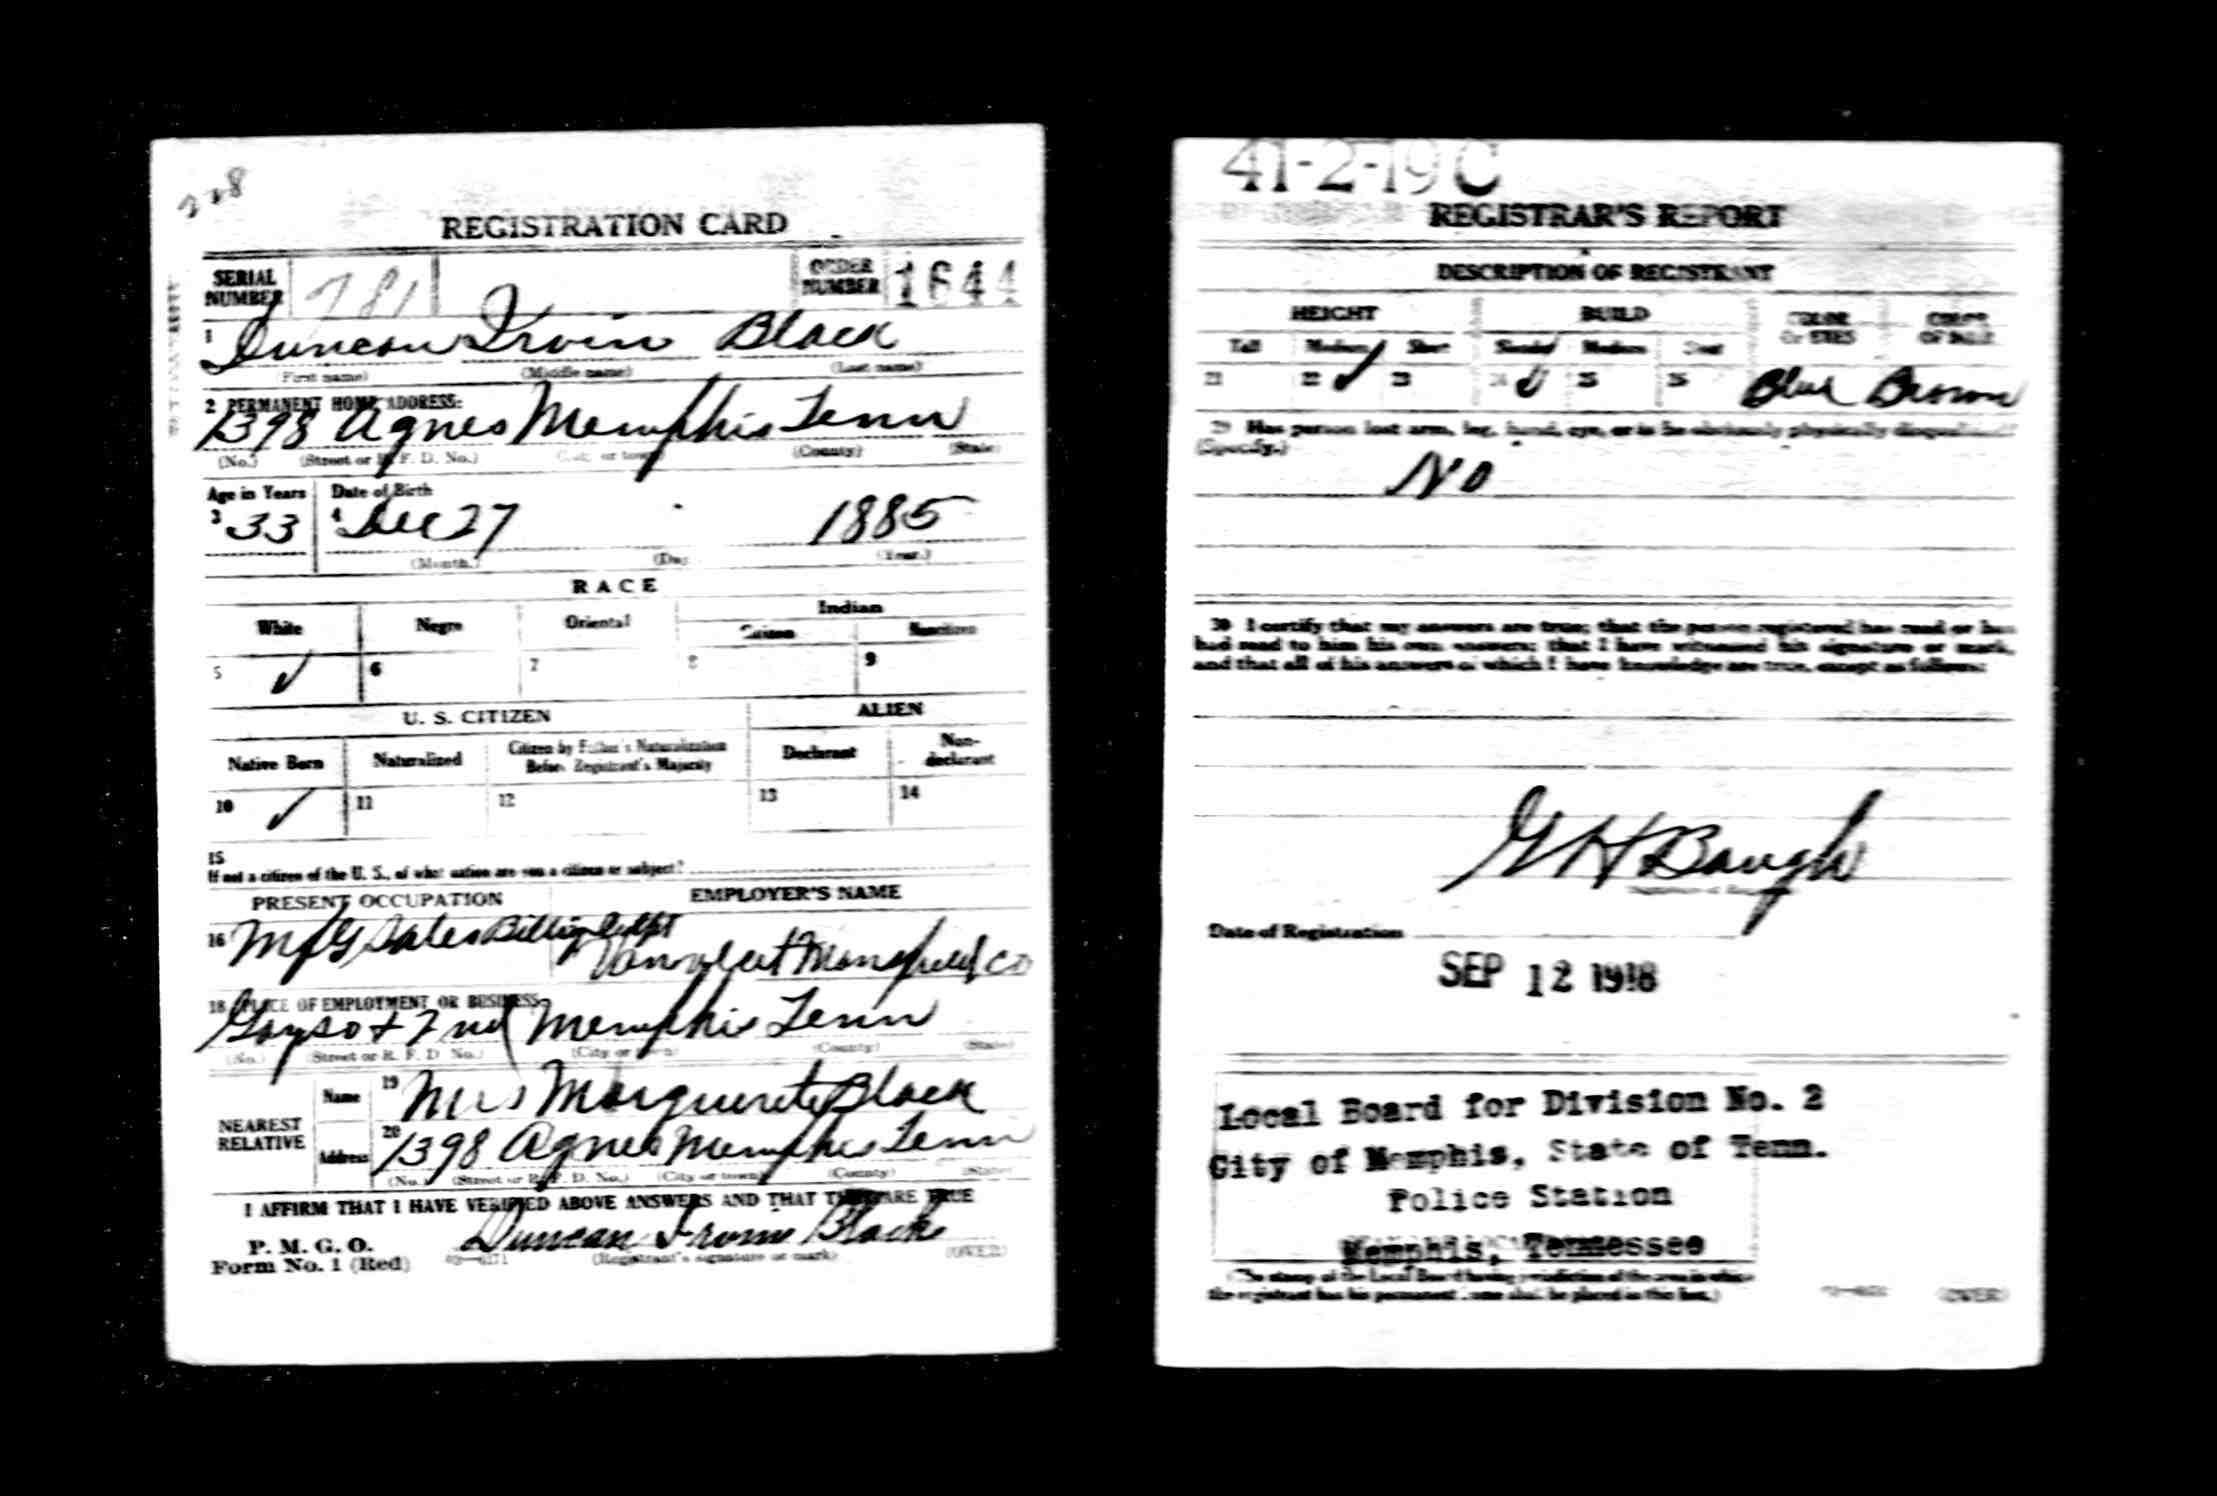 228
REGISTRATION CARD
SERIAL NUMBER 781 ORDER NUMBER 1644
1 Duncan Irvin Black
(First name) (Middle name) (Last name)
2 PERMANENT HOME ADDRESS:
1398 Agnes Memphis Tenn
(No.) (Street or R. F. D. No.) (City or town) (County) (State)
Age in Years Date of Birth
3 33 4 Dec 27 1885
(Month.) (Day) (Year.)
RACE
White Negro Oriental Indian
Citizen Noncitizen
5 ✓ 6 7 8 9
U. S. CITIZEN ALIEN
Native Born Naturalized Citizen by Father's Naturalization Before Registrant's Majority Declarant Non-declarant
10 ✓ 11 12 13 14
15
If not a citizen of the U. S., of what nation are you a citizen or subject?
PRESENT OCCUPATION EMPLOYER'S NAME
16 Mfg Sales Billing Dept
Mansfield Co
18 PLACE OF EMPLOYMENT OR BUSINESS:
Gayso + 2nd Memphis Tenn
(No.) (Street or R. F. D. No.) (City or town) (County) (State)
NEAREST RELATIVE
Name 19 Mrs Marguerite Black
Address 20 1398 Agnes Memphis Tenn
(No.) (Street or R. F. D. No.) (City or town) (County) (State)
I AFFIRM THAT I HAVE VERIFIED ABOVE ANSWERS AND THAT THEY ARE TRUE
P. M. G. O.
Form No. 1 (Red)
Duncan Irvin Black
(Registrant's signature or mark) (OVER)
41-2-19 C
REGISTRAR'S REPORT
DESCRIPTION OF REGISTRANT
HEIGHT BUILD COLOR OF EYES COLOR OF HAIR
Tall Medium Short Slender Medium Stout
21 22 ✓ 23 24 ✓ 25 26 Blue Brown
29 Has person lost arm, leg, hand, eye, or is he obviously physically disqualified?
(Specify.)
No
30 I certify that my answers are true; that the person registered has read or has
had read to him his own answers; that I have witnessed his signature or mark,
and that all of his answers of which I have knowledge are true, except as follows:
G H Baugh
Date of Registration
SEP 12 1918
Local Board for Division No. 2
City of Memphis, State of Tenn.
Police Station
Memphis, Tennessee
(The stamp of the Local Board having jurisdiction of the area in which
the registrant has his permanent home shall be placed in this box.)
(OVER)